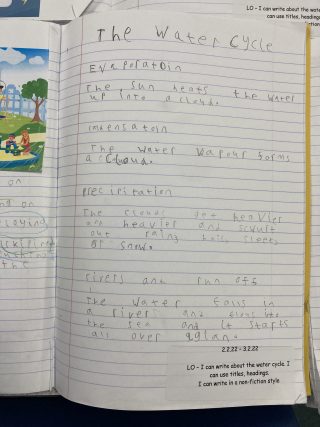 LO – I can write about the wate
can use titles, headings
in a non-fiction
The Water Cycle
Evaporatoin
The sun heats the water
up into a cloud.
The water vapour forms
a cloud.
precipitation
The clouds get heavier
an heavier and
out rain,
or snow.
rivers ant run off
The water falls in
a rivers and
the sea and it starts
all over
on
the
2.2.22 – 3.2.22
LO – I can write about the water cycle. I
can use titles, headings.
I can write in a non-fiction style.